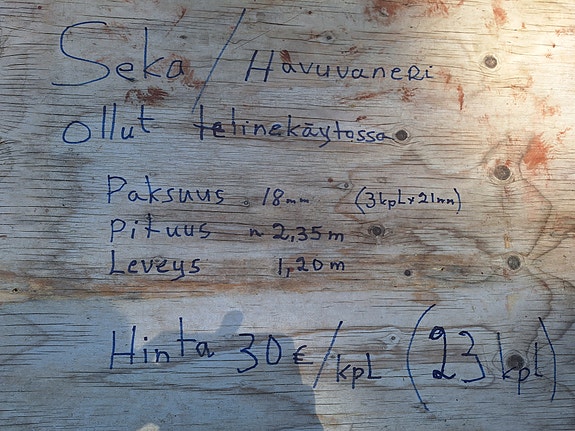 Seka / Havuvaneri
ollut telinekäytossa
Paksuus. 18mm (3kpl x 21mm)
Pituus n 2,35m
Leveys 1,20m
Hinta 30€/kpl (23 kpl)